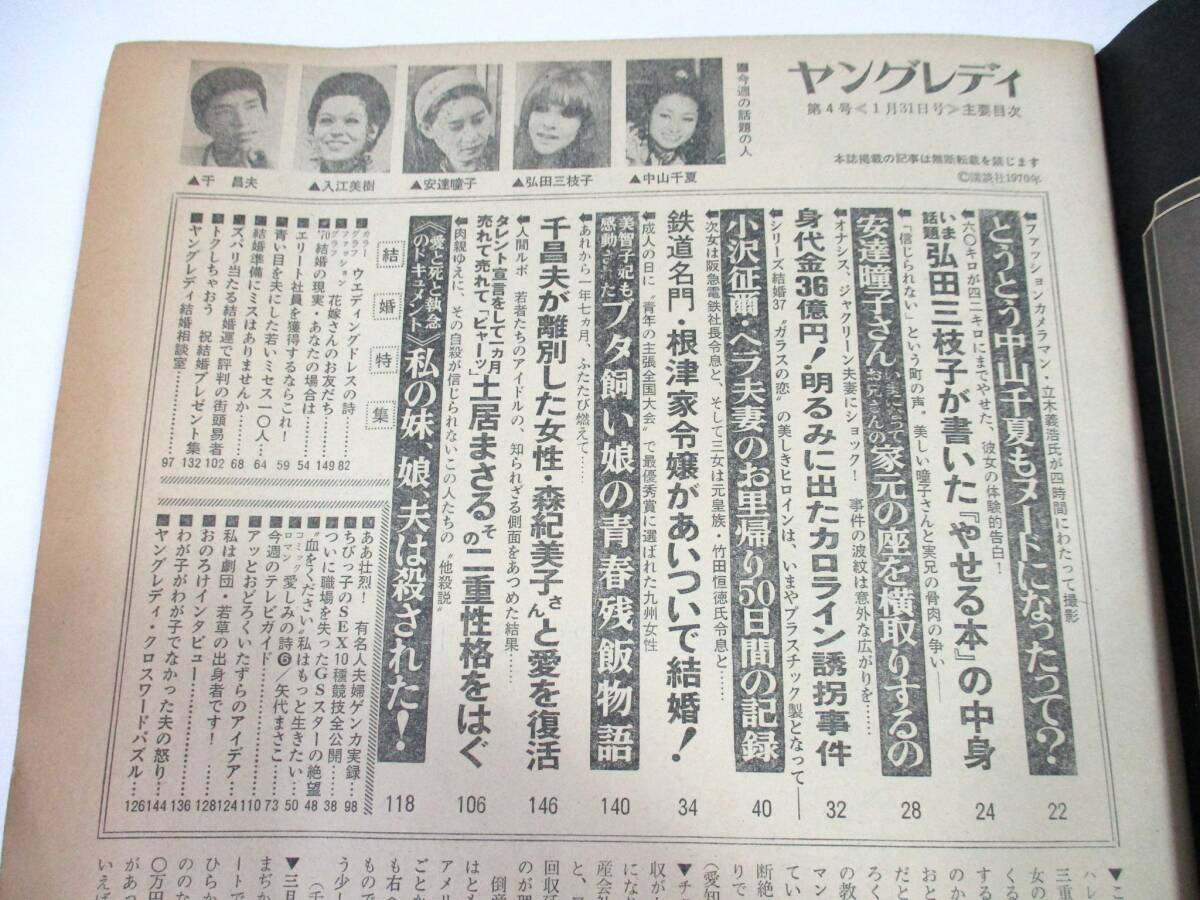 ヤングレディ
第4号<1月31日号>主要目次
本誌掲載の記事は無断転載を禁じます
©講談社1970年
■今週の話題の人
▲中山千夏
▲弘田三枝子
▲安達瞳子
▲入江美樹
▲千　昌夫
ファッションカメラマン・立木義浩氏が四時間にわたって撮影
とうとう中山千夏もヌードになったって?
22
六〇キロが四二キロにまでやせた、彼女の体験的告白!
いま話題 弘田三枝子が書いた『やせる本』の中身
24
「信じられない」という町の声。美しい瞳子さんと実兄の骨肉の争い――
安達瞳子さん いまになってお兄さんの 家元の座を横取りするの
28
オナシス、ジャクリーン夫妻にショック! 事件の波紋は意外な広がりを……
身代金36億円!明るみに出たカロライン誘拐事件
32
シリーズ結婚37 "ガラスの恋"の美しきヒロインは、いまやプラスチック製となって――
小沢征爾・ベラ夫妻のお里帰り50日間の記録
40
次女は阪急電鉄社長令息と、そして三女は元皇族・竹田恒徳氏令息と……
鉄道名門・根津家令嬢があいついで結婚!
34
成人の日に"青年の主張全国大会"で最優秀賞に選ばれた九州女性
美智子妃も感動された ブタ飼い娘の青春残飯物語
140
あれから一年七ヵ月、ふたたび燃えて……
千昌夫が離別した女性・森紀美子さんと愛を復活
146
人間ルポ　若者たちのアイドルの、知られざる側面をあつめた結果……
タレント宣言をして一ヵ月 売れて売れて「ビャーッ」 土居まさるその二重性格をはぐ
106
肉親ゆえに、その自殺が信じられないこの人たちの"他殺説"
《愛と死と執念のドキュメント》私の妹、娘、夫は殺された!
118
結婚特集
カラーグラフ ウエディングドレスの詩……82
ファッショングラフ 花嫁さんのお友だち……149
'70結婚の現実・あなたの場合は……54
エリート社員を獲得するならこれ!……59
青い目を夫にした若いミセス一〇人……64
結婚準備にミスはありませんか……68
ズバリ当たる結婚運で評判の街頭易者……102
トクしちゃおう　祝結婚プレゼント集……132
ヤングレディ結婚相談室……97
ああ壮烈!　有名人夫婦ゲンカ実録……98
ちびっ子のSEX10種競技全公開……38
ついに職場を失ったGSスターの絶望……48
"血をください"私はもっと生きたい……50
コミックロマン 愛しみの詩❻/矢代まさこ……73
今週のテレビガイド……110
アッとおどろくいたずらのアイデア……124
私は劇団・若草の出身者です!……128
おのろけインタビュー……136
わが子がわが子でなかった夫の怒り……144
ヤングレディ・クロスワードパズル……126